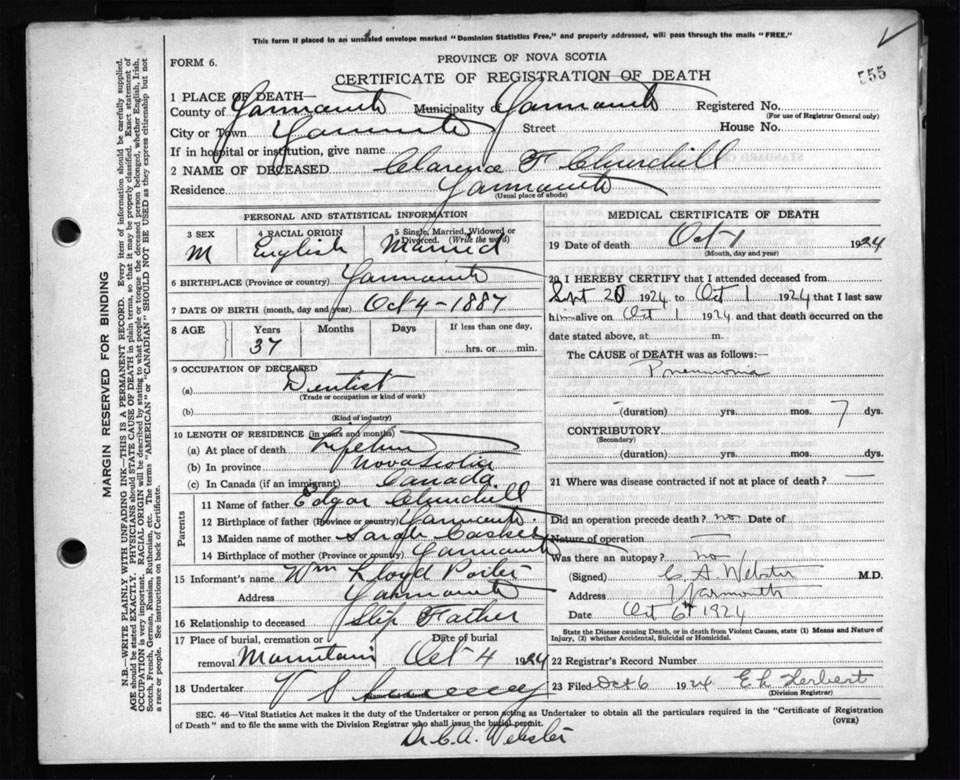 This form if placed in an unsealed envelope marked "Dominion Statistics Free," and properly addressed, will pass through the mails "FREE."
FORM 6.
PROVINCE OF NOVA SCOTIA
CERTIFICATE OF REGISTRATION OF DEATH
555
1 PLACE OF DEATH—
County of Yarmouth Municipality of Yarmouth Registered No.
(For use of Registrar General only)
City or Town Yarmouth Street House No.
If in hospital or institution, give name
2 NAME OF DECEASED Clarence F Churchill
Residence Yarmouth
(Usual place of abode)
MARGIN RESERVED FOR BINDING
N.B.—WRITE PLAINLY WITH UNFADING INK—THIS IS A PERMANENT RECORD. Every item of information should be carefully supplied.
AGE should be stated EXACTLY. PHYSICIANS should STATE CAUSE OF DEATH in plain terms, so that it may be properly classified. Exact statement of
OCCUPATION is very important. RACIAL ORIGIN will be described by stating to what people or tongue the deceased person belonged, whether English, Irish,
Scotch, French, German, Russian, Ruthenian, etc. The terms "AMERICAN" or "CANADIAN" SHOULD NOT BE USED as they express citizenship but not
a race or people. See instructions on back of Certificate.
PERSONAL AND STATISTICAL INFORMATION
3 SEX 4 RACIAL ORIGIN 5 Single, Married, Widowed or Divorced. (Write the word)
M English Married
6 BIRTHPLACE (Province or country) Yarmouth
7 DATE OF BIRTH (month, day and year) Oct 4 - 1887
8 AGE Years Months Days If less than one day,
37 hrs. or min.
9 OCCUPATION OF DECEASED
(a) Dentist
(Trade or occupation or kind of work)
(b)
(Kind of industry)
10 LENGTH OF RESIDENCE (in years and months)
(a) At place of death Lifetime
(b) In province Nova Scotia
(c) In Canada (if an immigrant) Canada
Parents
11 Name of father Edgar Churchill
12 Birthplace of father (Province or country) Yarmouth
13 Maiden name of mother Sarah
14 Birthplace of mother (Province or country) Yarmouth
15 Informant's name Wm Lloyd Porter
Address Yarmouth
16 Relationship to deceased Step Father
17 Place of burial, cremation or Date of burial
removal Mountain Oct 4 1924
18 Undertaker V S
MEDICAL CERTIFICATE OF DEATH
19 Date of death Oct 1 1924
(Month, day and year)
20 I HEREBY CERTIFY that I attended deceased from
Sept 20 1924 to Oct 1 1924 that I last saw
him alive on Oct 1 1924 and that death occurred on the
date stated above, at m.
The CAUSE of DEATH was as follows:—
Pneumonia
(duration) yrs. mos. 7 dys.
CONTRIBUTORY
(Secondary)
(duration) yrs. mos. dys.
21 Where was disease contracted if not at place of death?
Did an operation precede death? no Date of
Nature of operation
Was there an autopsy? no
(Signed) C A Webster M.D.
Address Yarmouth
Date Oct 6th 1924
State the Disease causing Death, or in death from Violent Causes, state (1) Means and Nature of
Injury, (2) whether Accidental, Suicidal or Homicidal.
22 Registrar's Record Number
23 Filed Oct 6 1924 E L Herbert
(Division Registrar)
SEC. 46—Vital Statistics Act makes it the duty of the Undertaker or person acting as Undertaker to obtain all the particulars required in the "Certificate of Registration
of Death" and to file the same with the Division Registrar who shall issue the burial permit. (OVER)
Dr C.A. Webster